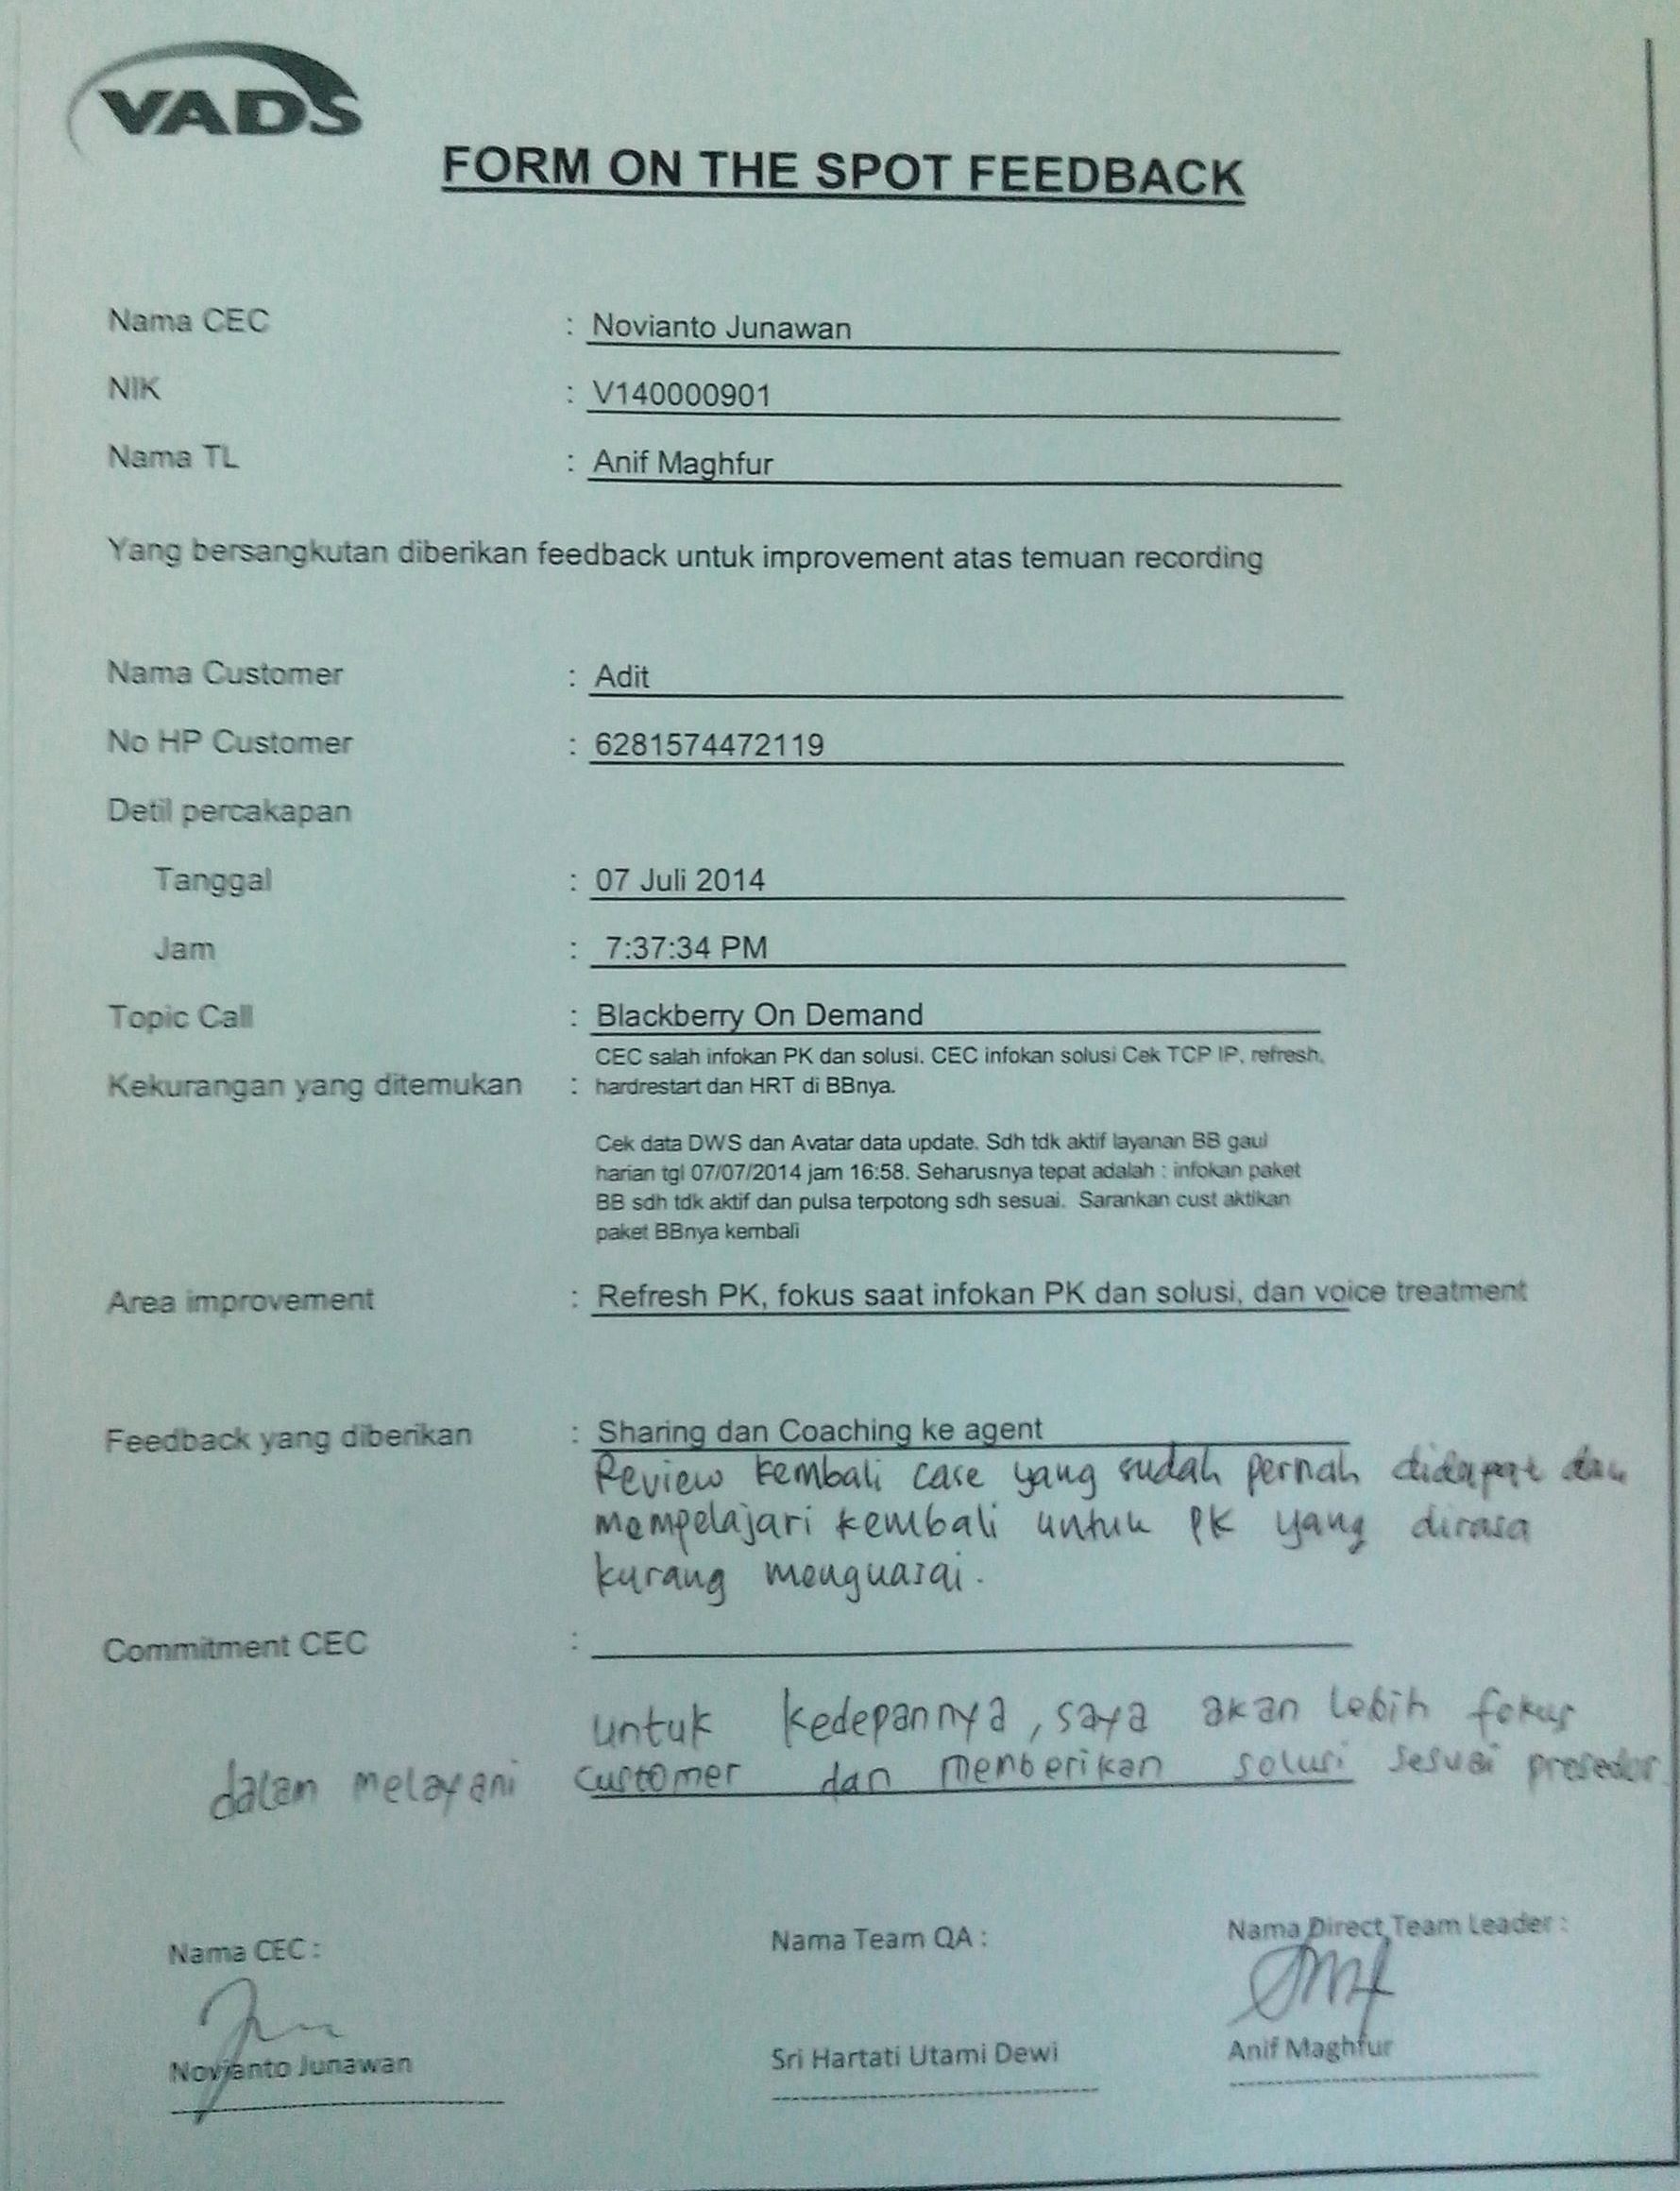 VADS
FORM ON THE SPOT FEEDBACK
Nama CEC : Novianto Junawan
NIK : V140000901
Nama TL : Anif Maghfur
Yang bersangkutan diberikan feedback untuk improvement atas temuan recording
Nama Customer : Adit
No HP Customer : 6281574472119
Detil percakapan
Tanggal : 07 Juli 2014
Jam : 7:37:34 PM
Topic Call : Blackberry On Demand
CEC salah infokan PK dan solusi. CEC infokan solusi Cek TCP IP, refresh,
Kekurangan yang ditemukan : hardrestart dan HRT di BBnya.
Cek data DWS dan Avatar data update. Sdh tdk aktif layanan BB gaul
harian tgl 07/07/2014 jam 16:58. Seharusnya tepat adalah : infokan paket
BB sdh tdk aktif dan pulsa terpotong sdh sesuai. Sarankan cust aktikan
paket BBnya kembali
Area improvement : Refresh PK, fokus saat infokan PK dan solusi, dan voice treatment
Feedback yang diberikan : Sharing dan Coaching ke agent
Review kembali case yang sudah pernah didapat dan
mempelajari kembali untuk PK yang dirasa
kurang menguasai.
Commitment CEC :
untuk kedepannya, saya akan lebih fokus
dalam melayani customer dan memberikan solusi sesuai prosedur
Nama CEC : Nama Team QA : Nama Direct Team Leader :
Novianto Junawan Sri Hartati Utami Dewi Anif Maghfur